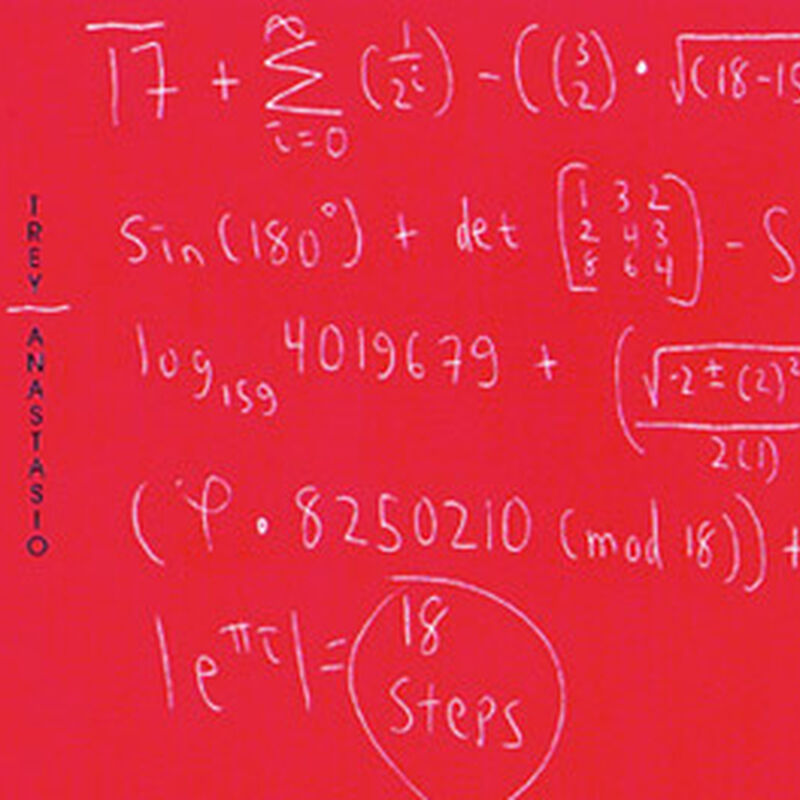 TREY ANASTASIO
17 + ∑ i=0 ∞ (1/2^i) - ((3 2) · √(18-15
sin(180°) + det [1 3 2 2 4 3 8 6 4] - S
log₁₅₉ 4019679 + (√-2 ± (2)² / 2(1)
(φ · 8250210 (mod 18)) +
|e^πi| = 18
Steps